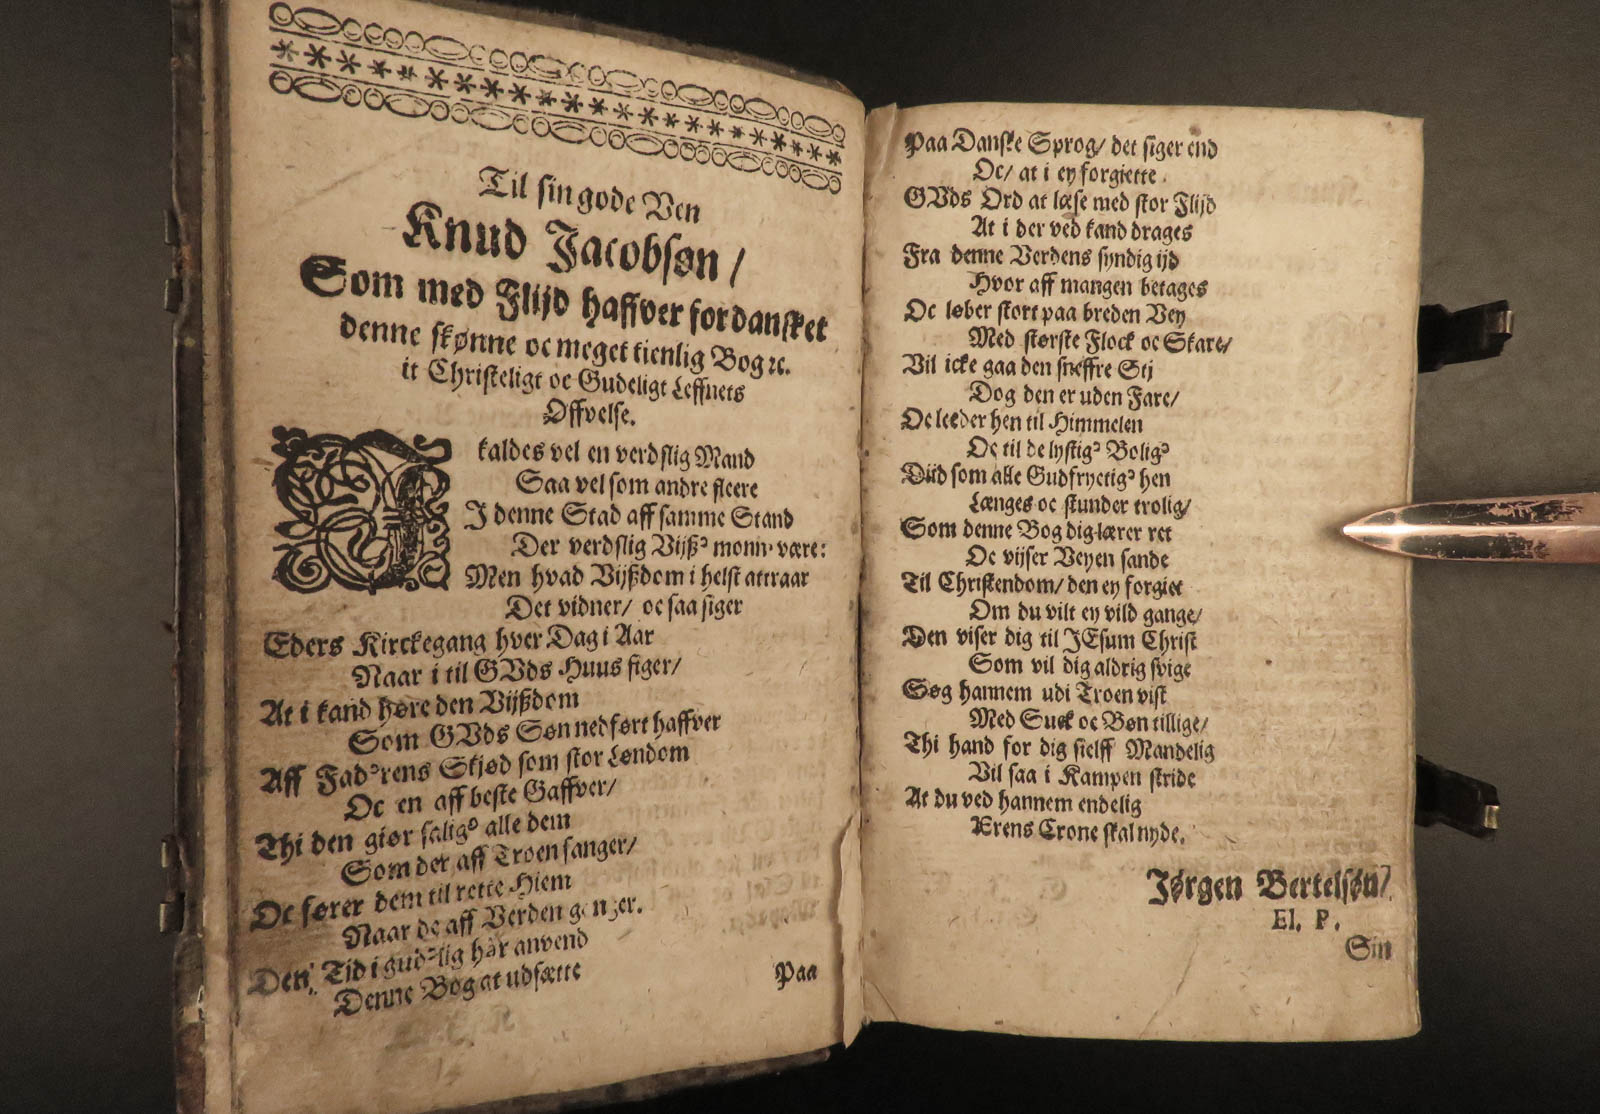 Til sin gode Ven
Knud Jacobsøn/
Som med Flijd haffver fordansket
denne skønne oc meget tienlig Bog ꝛc.
it Christeligt oc Gudeligt Leffnets
Øffvelse.
I kaldes vel en verdslig Mand
Saa vel som andre fleere
I denne Stad aff samme Stand
Der verdslig Vijßꝰ monn være:
Men hvad Vijßdom i helst attraar
Det vidner/ oc saa siger
Eders Kirckegang hver Dag i Aar
Naar i til GVds Huus stiger/
At i kand høre den Vijßdom
Som GVds Søn nedført haffver
Aff Fadꝰrens Skjød som stor Løndom
Oc en aff beste Gaffver/
Thi den giør saligꝰ alle dem
Som det aff Troen fanger/
Oc fører dem til rette Hiem
Naar de aff Verden ganger.
Den Tid i gudꝰlig har anvend
Denne Bog at udsætte
Paa
Paa Danske Sprog/ det siger end
Oc/ at i ey forgiette.
GVds Ord at læse med stor Flijd
At i der ved kand drages
Fra denne Verdens syndig ijd
Hvor aff mangen betages
Oc løber stort paa breden Vey
Med største Flock oc Skare/
Vil icke gaa den sneffre Stj
Dog den er uden Fare/
Oc leeder hen til Himmelen
Oc til de lystigꝰ Boligꝰ
Diid som alle Gudfryctigꝰ hen
Længes oc stunder trolig/
Som denne Bog dig lærer ret
Oc vijser Veyen sande
Til Christendom/ den ey forgiet
Om du vilt ey vild gange/
Den viser dig til JEsum Christ
Som vil dig aldrig svige
Søg hannem udi Troen vist
Med Suck oc Bøn tillige/
Thi hand for dig sielff Mandelig
Vil saa i Kampen stride
At du ved hannem endelig
Ærens Crone skal nyde.
Jørgen Bertelsøn/
El. P.
Sin